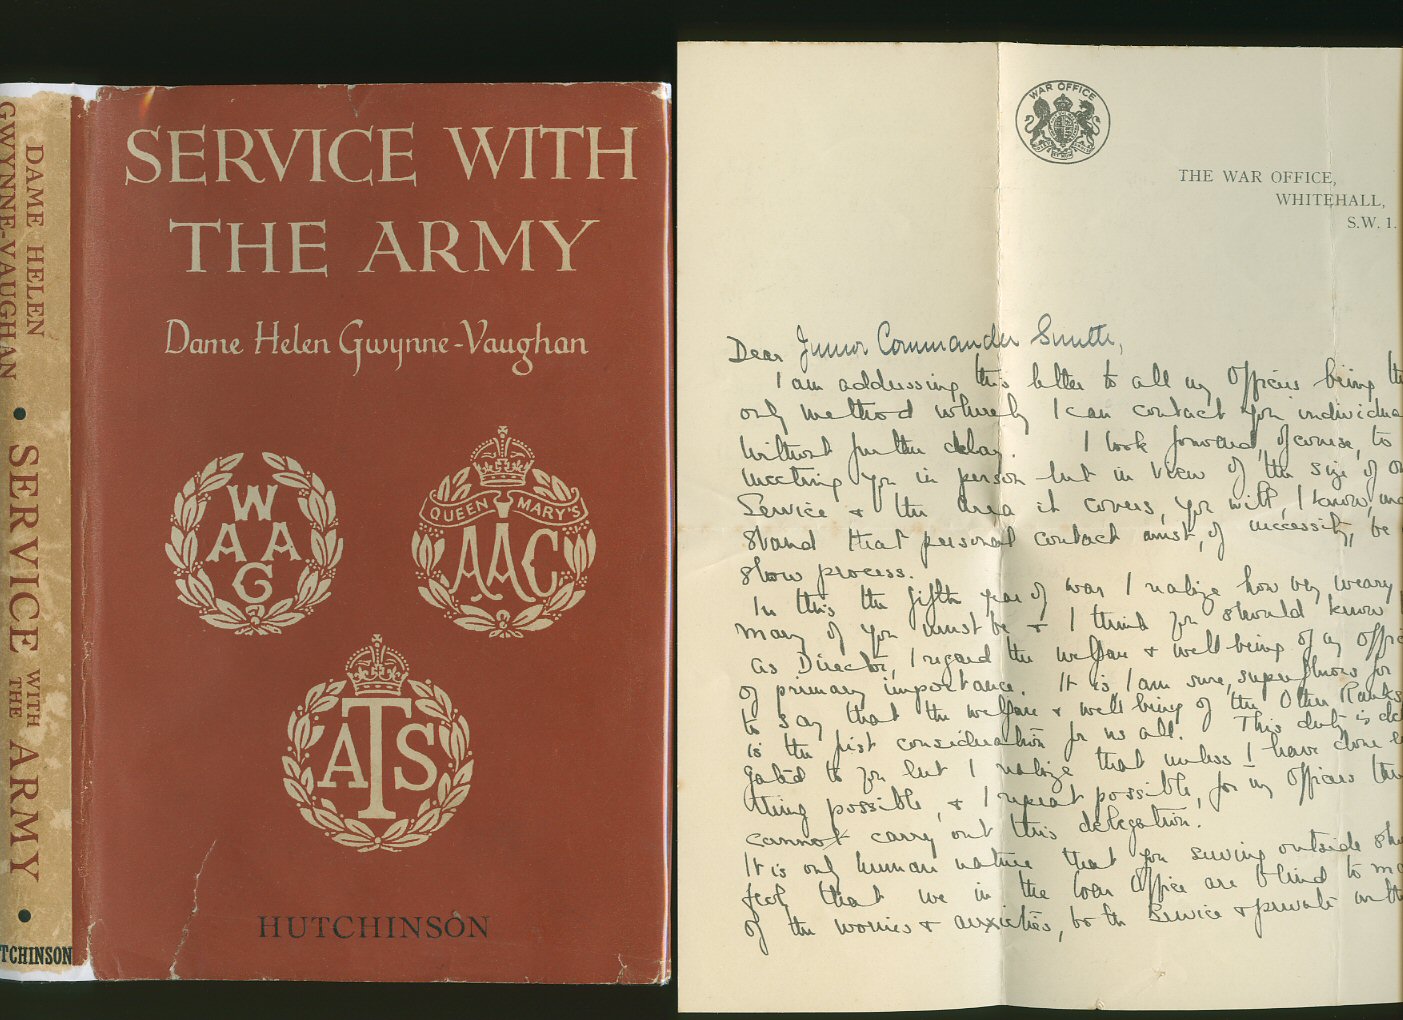 DAME HELEN
GWYNNE-VAUGHAN
•
SERVICE
WITH
THE
ARMY
•
TCHINSON
SERVICE WITH
THE ARMY
Dame Helen Gwynne-Vaughan
W
A A
G
QUEEN MARY'S
AAC
ATS
HUTCHINSON
WAR OFFICE
THE WAR OFFICE,
WHITEHALL,
S.W. 1.
Dear Junior Commander Smith,
I am addressing this letter to all my Officers being the
only method whereby I can contact you individua
without further delay. I look forward, of course, to
meeting you in person but in view of the size of
Service & the area it covers, you will, I know,
stand that personal contact must, of necessity, be
slow process.
In this the fifth year of war I realize how very weary
many of you must be & I think you should know
as Director, I regard the welfare & well being of my offi
of primary importance. It is, I am sure, superfluous for
to say that the welfare & well being of the Other Ranks
is the first consideration for us all. This duty is del
gated to you but I realize that unless I have done
thing possible, & I repeat possible, for my Officers
cannot carry out this delegation.
It is only human nature that you serving outside
feel that we in the War Office are blind to
of the worries & anxieties, both Service & private